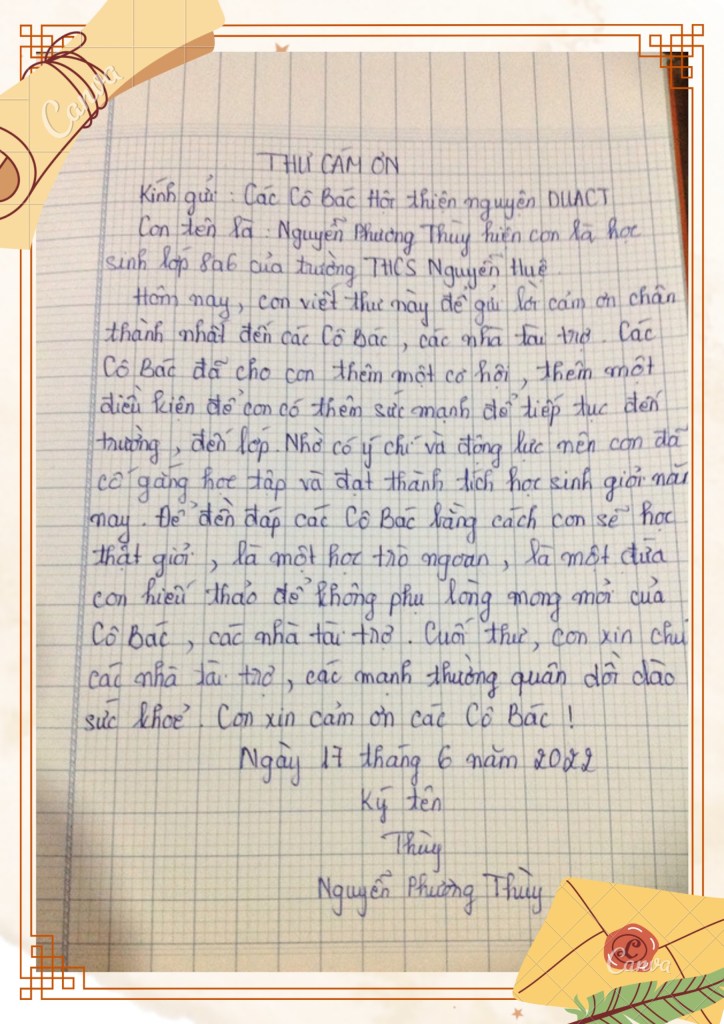 THƯ CẢM ƠN
Kính gửi : Các Cô Bác Hội thiện nguyện DUACT
Con tên là : Nguyễn Phương Thùy hiện con là học
sinh lớp 8a6 của trường THCS Nguyễn Huệ.
Hôm nay, con viết thư này để gửi lời cảm ơn chân
thành nhất đến các Cô Bác, các nhà tài trợ. Các
Cô Bác đã cho con thêm một cơ hội, thêm một
điều kiện để con có thêm sức mạnh để tiếp tục đến
trường, đến lớp. Nhờ có ý chí và động lực nên con đã
cố gắng học tập và đạt thành tích học sinh giỏi năm
nay. Để đền đáp các Cô Bác bằng cách con sẽ học
thật giỏi, là một học trò ngoan, là một đứa
con hiếu thảo để không phụ lòng mong mỏi của
Cô Bác, các nhà tài trợ. Cuối thư, con xin chú
các nhà tài trợ, các mạnh thường quân dồi dào
sức khoẻ. Con xin cảm ơn các Cô Bác!
Ngày 17 tháng 6 năm 2022
Ký tên
Thùy
Nguyễn Phương Thùy
Canva
Canva